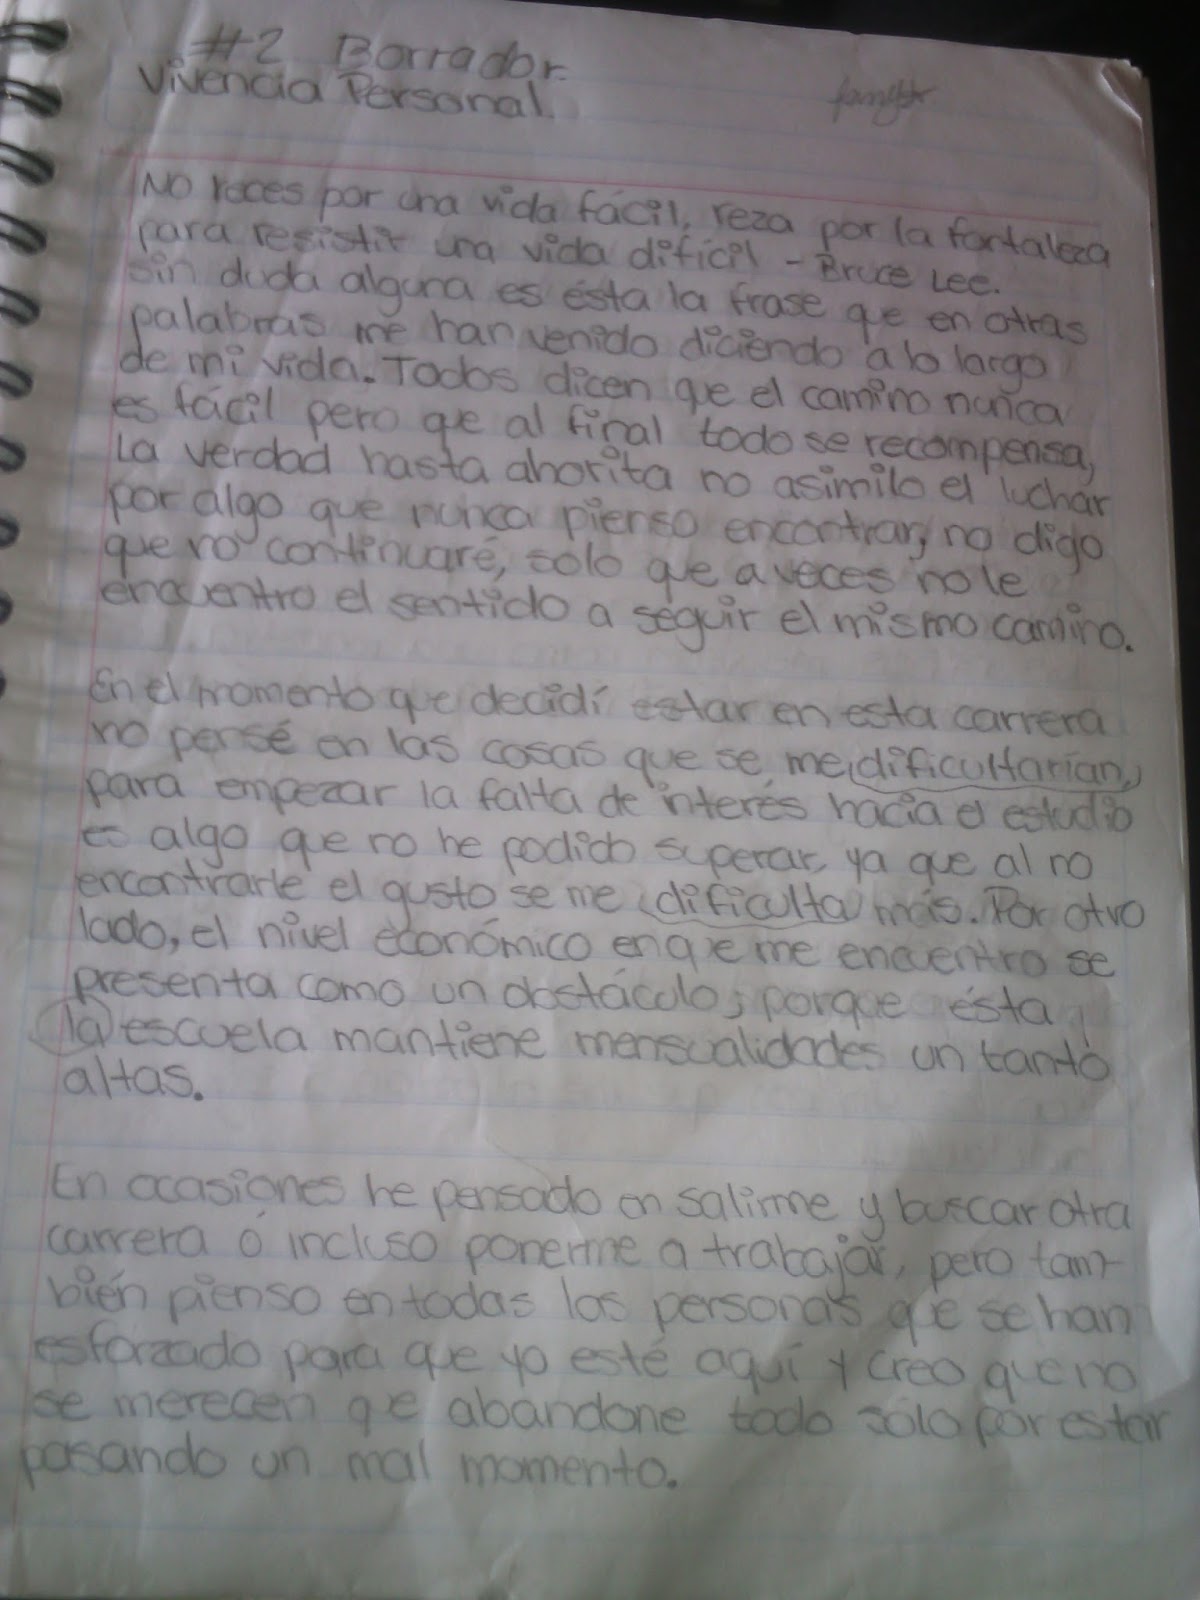 #2 Borrador.
Vivencia Personal.
No reces por una vida fácil, reza por la fortaleza
para resistir una vida difícil - Bruce Lee.
Sin duda alguna es ésta la frase que en otras
palabras me han venido diciendo a lo largo
de mi vida. Todos dicen que el camino nunca
es fácil pero que al final todo se recompensa,
La verdad hasta ahorita no asimilo el luchar
por algo que nunca pienso encontrar, no digo
que no continuaré, solo que a veces no le
encuentro el sentido a seguir el mismo camino.
En el momento que decidí estar en esta carrera
no pensé en las cosas que se me dificultarían,
para empezar la falta de interés hacia el estudio
es algo que no he podido superar, ya que al no
encontrarle el gusto se me dificulta más. Por otro
lado, el nivel económico en que me encuentro se
presenta como un obstáculo; porque ésta
la escuela mantiene mensualidades un tanto
altas.
En ocasiones he pensado en salirme y buscar otra
carrera ó incluso ponerme a trabajar, pero tam-
bién pienso en todas las personas que se han
esforzado para que yo esté aquí y creo que no
se merecen que abandone todo sólo por estar
pasando un mal momento.